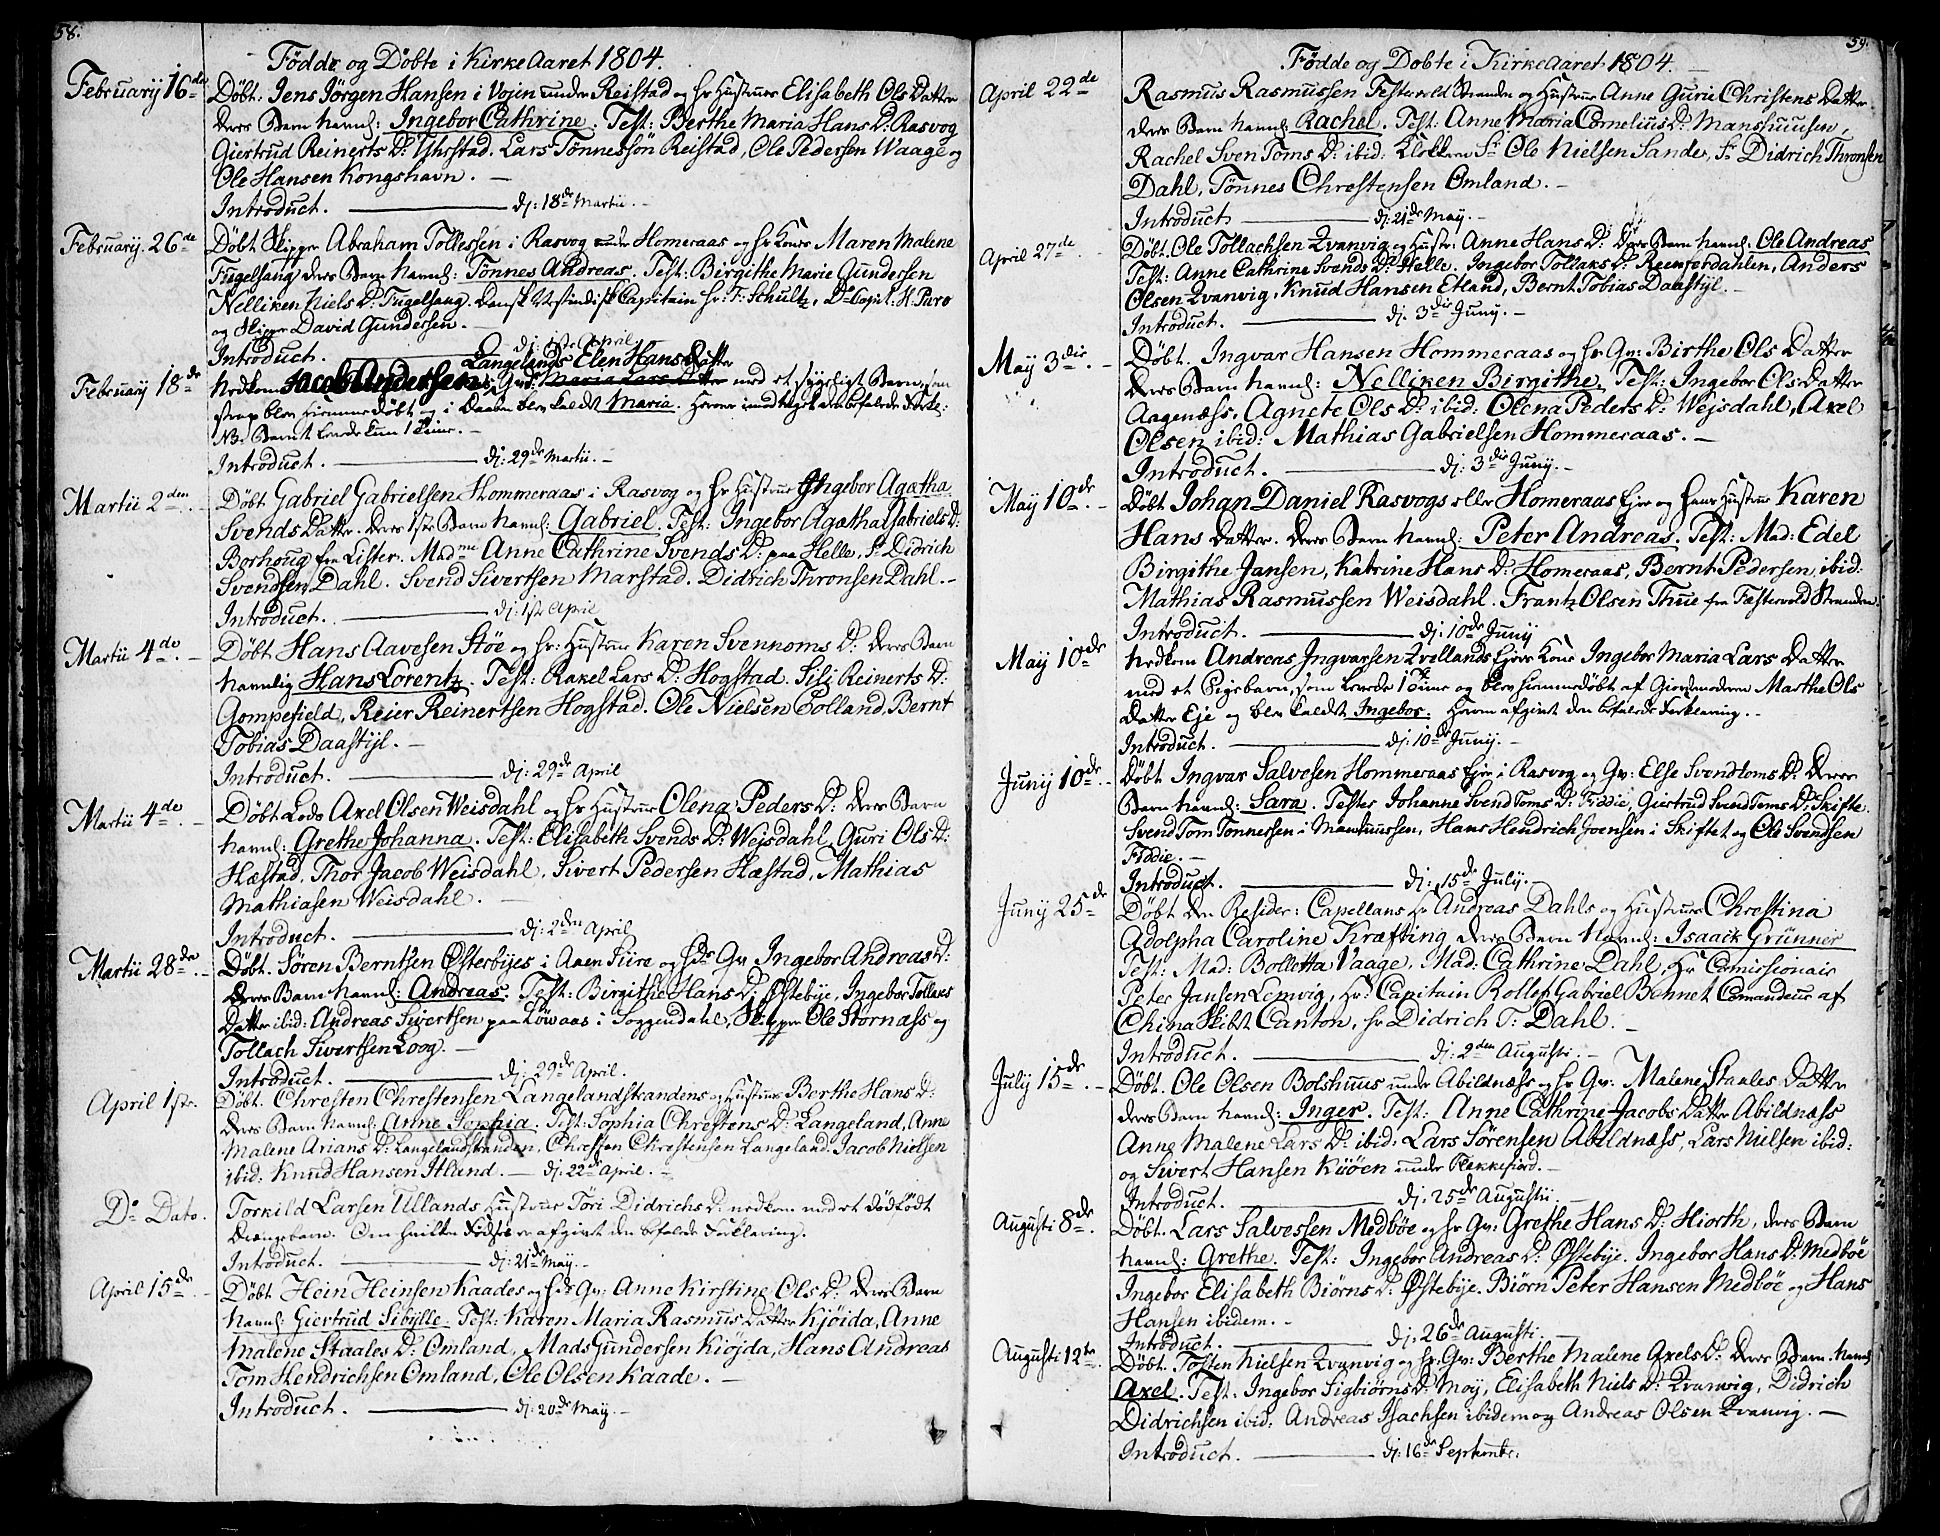 58.
Födde og Döbte i Kirke Aaret 1804.
Februarij 16de
Döbt: Jens Jörgen Hansen i Vojen under Reistad og hr Hustrue Elisabeth Ols Datter
deres Barn navnl: Ingebor Cathrine. Test: Berthe Maria Hans D: Rasvog
Giertrud Reinerts D: Lars Tönnessön Reistad, Ole Pedersen Waage og
Ole Hansen Kongshavn. —
Introduct. — dj: 18de Martii. —
Februarij. 26de
Döbt Skipper Abraham Tollessen i Rasvog under Homeraas og hr Kone Maren Malene
Fugelsang deres Barn navnl: Tönnes Andreas. Test: Birgithe Marie Gundersen
Nelliken Niels D: Fugelsang. Dansk Vestindisk Capitain hr: F: Schultz, Do Capit: M: Pare
og Skipper David Gundersen. —
Introduct. — dj: 1ste April
Februarij 18de
Langelands Elen Hans Datter
Nedkom Jacob Andersen Gv: Maria Lars Datter med et sygeligt Barn, som
strax blev hiemmedöbt og i Daaben blev kaldet Maria. Herom indtaget den befalede Forkl:
NB. Barnet levede kun 1 Time. —
Introduct. — dj: 29de Martii. —
Martii 2den
Döbt Gabriel Gabrielsen Hommeraas i Rasvog og hr Hustrue Ingebor Agatha
Svends Datter. deres 1ste Barn navnl: Gabriel. Test: Ingebor Agatha Gabriels D:
Borhoug fra Lister. Madme Anne Cathrine Svends D: paa Helle. Sr Didrich
Svendsen Dahl. Svend Sivertsen Marstad. Didrich Thronsen Dahl. —
Introduct. — dj: 1ste April
Martii 4de. —
Döbt Hans Aavesen Stöe og hr: Hustrue Karen Svennoms D: deres Barn
navnlig Hans Lorentz. Test: Rakel Lars D: Hogstad. Sisi Reinerts D:
Gompefield, Reier Reinertsen Hogstad. Ole Nielsen Eolland, Bernt
Tobias Daastijl. —
Introduct. — dj: 29de April
Martii 4de. —
Döbt Lods Axel Olsen Weisdahl og hr Hustrue Olena Peders D: deres Barn
navnl: Grethe Johanna. Test: Elisabeth Svends D: Wejsdahl, Guri Ols D:
Hæstad, Thor Jacob Weisdahl, Sivert Pedersen Hæstad, Mathias
Mathiasen Weisdahl. —
Introduct. — dj: 2den April
Martii 28de. —
Döbt. Sören Berntsen Österbijes i Aaen Siire og hs Gv Ingebor Andreas D:
deres Barn navnl: Andreas. Test: Birgithe Hans D: Östebije, Ingebor Tollaks
Datter ibid: Andreas Sivertsen paa Löwaas i Soggendahl, Skipper Ole Stornæss og
Tollach Sivertsen Loog. —
Introduct. — dj: 29de April.
April 1ste.
Döbt. Chresten Chrestensen Langelandstrandens og Hustrue Berthe Hans D:
deres Barn navnl: Anne Sophia. Test: Sophia Chrestens D: Langeland, Anne
Malene Arians D: Langelandstranden, Chresten Chrestensen Langeland. Jacob Nielsen
ibid: Knud Hansen Itland. — dj: 22de April. —
Do Dato.
Torkild Larsen Ullands Hustrue Töri Didrichs D: nedkom med et dödfödt
Drengebarn. Om hvilken Födsel er afgivet den befalede Forklaring.
Introduct. — dj: 21de Maij. —
April 15de. —
Döbt Hein Heinsen Kaades og hs Gv: Anne Kirstine Ols D: deres Barn
navnl: Giertrud Sibijlle. Test: Karen Maria Rasmus Datter Kjöida, Anne
Malene Staales D: Omland, Mads Gundersen Kiöjda, Hans Andreas
Tom Hendrichsen Omland, Ole Olsen Kaade. —
Introduct. — dj: 20de Maij. —
59.
Födde og Döbte i Kirke Aaret 1804. —
April 22de
Rasmus Rasmussen Festervold Stranden og Hustrue Anne Gurie Christens Datter
deres Barn navnl: Rachel. Test: Anne Maria Cornelius D: Manshuusen,
Rachel Sven Toms D: ibid: Klokkeren Sr Ole Nielsen Sande, Sr Didrich Thronsen
Dahl, Tönnes Chrestensen Omland. —
Introduct — dj: 21de Maij. —
April 27de. —
Döbt. Ole Tollachsen Qvanvig og Hustr: Anne Hans D: deres Barn navnl: Ole Andreas
Test: Anne Cathrine Svends D: Helle. Ingebor Tollaks D: Reenferdahlen, Anders
Olsen Qvanvig, Knud Hansen Etland, Bernt Tobias Daastijl. —
Introduct. — dj. 3die Junij. —
Maij 3die. —
Döbt. Ingvar Hansen Hommeraas og hr Gv: Birthe Ols Datter
deres Barn navnl: Nelliken Birgithe. Test: Ingebor Ols Datter
Aagenæss, Agnete Ols D: ibid: Olena Peders D: Wejsdahl, Axel
Olsen ibid: Mathias Gabrielsen Hommeraas. —
Introduct. — dj: 3die Junij. —
Maij 10de. —
Döbt Johan Daniel Rasvogs eller Homeraas Ejer og hans Hustrue Karen
Hans Datter. deres Barn navnl: Peter Andreas. Test: Mad: Edel
Birgithe Jansen, Katrine Hans D: Homeraas, Bernt Pedersen, ibid:
Mathias Rasmussen Weisdahl. Frantz Olsen Thue fra Fæstervold Stranden.
Introduct. — dj: 10de Junij
Maij 10de
Nedkom Andreas Ingvarsen Qvellands Ejers Kone Ingebor Maria Lars Datter
med et Pigebarn, som levede 1 Time og blev hiemmedöbt af Giordemoderen Marthe Ols
Datter Eje og blev kaldet Ingebor. Herom afgivet den befalede Forklaring. —
Introduct. — dj: 10de Junij. —
Junij 10de. —
Döbt Ingvar Salvesen Hommeraas Ejer i Rasvog og Gv: Else Svendtoms D: deres
Barn navnl: Sara. Testes Johanne Svend Toms D: Fidie, Giertrud Svend Toms D: Skifte.
Svend Tom Tönnessen i Manhuussen, Hans Hendrich Joensen i Skiftet og Ole Svendsen
Fidie. —
Introduct. — dj: 15de Julij. —
Junij 25de
Döbt den Resider: Capellans hr Andreas Dahls og Hustrue Chrestina
Adolpha Caroline Kræfting deres Barn navnl: Isaack Grünner
Test: Mad: Bolletta Vaage, Mad: Cathrine Dahl, Hr Comissionair
Peter Jansen Lemvig, Hr: Capitain Rollof Gabriel Bennet Comandeur af
China Skibet Canton, hr Didrich T: Dahl. —
Introduct. — dj: 2den Augusti. —
Julij 15de. —
Döbt. Ole Olsen Bolshuus under Abildnæss og hr Gv: Malene Staales Datter
deres Barn navnl: Inger. Test: Anne Cathrine Jacobs Datter Abildnæss
Anne Malene Lars D: ibid: Lars Sörensen Abildnæss, Lars Nielsen ibid:
og Sivert Hansen Kiöen under Flekkefiord. —
Introduct. — dj: 25de Augustii. —
Augusti 8de.
Döbt. Lars Salvessen Medböe og hr Gv: Grethe Hans D: Hiorth, deres Barn
navnl: Grethe. Test: Ingebor Andreas D: Östebije. Ingebor Hans D: Medböe
Ingebor Elisabeth Biörns D: Östebije. Biörn Peter Hansen Medböe og Hans
Hansen ibidem. —
Introduct. — dj: 26de Augusti. —
Augusti 12te.
Döbt. Tosten Nielsen Qvanvig og hr: Gv: Berthe Malene Axels D: deres Barn navnl
Axel. Test: Ingebor Sigbiörns D: Moij, Elisabeth Niels D: Qvanvig, Didrich
Didrichsen ibid: Andreas Isachsen ibidem og Andreas Olsen Qvanvig. —
Introduct. — dj: 16de Septembr.